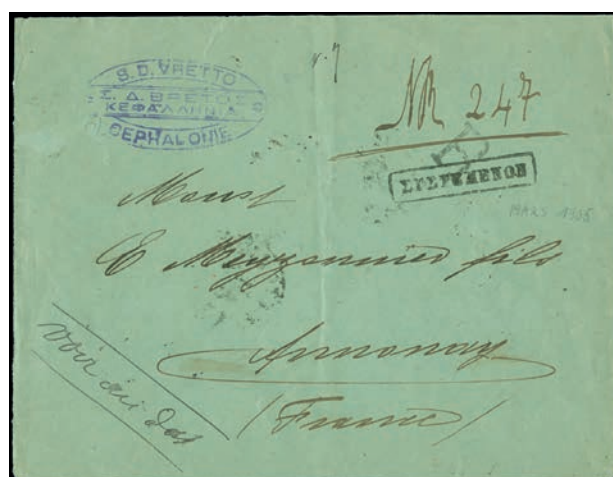 S. D. VRETTO
Σ. Δ. ΒΡΕΤΟΣ
ΚΕΦΑΛΛΗΝΙΑ
CEPHALONIE
NR 247
ΣΥΣΤΗΜΕΝΟΝ
MARS 1885
Monsr
E Meyzonnier fils
Annonay
(France)
Voir au dos